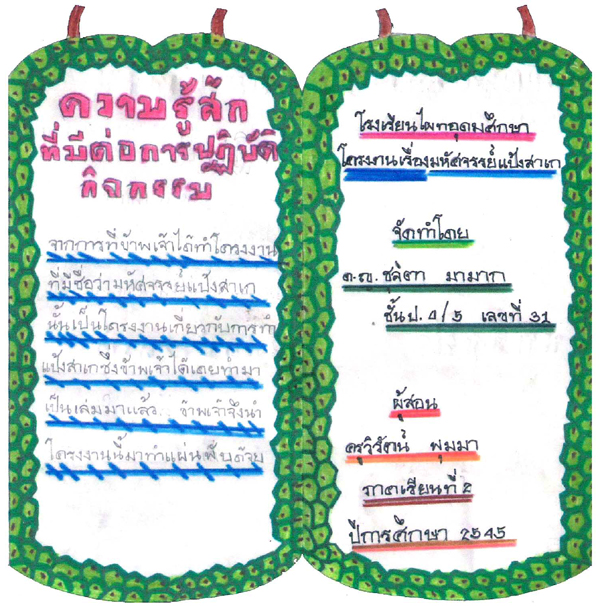 ความรู้สึก
ที่มีต่อการปฏิบัติ
กิจกรรม
จากการที่ข้าพเจ้าได้ทำโครงงาน
ที่มีชื่อว่ามหัศจรรย์แป้งสาเก
นั้นเป็นโครงงานเกี่ยวกับการทำ
แป้งสาเกซึ่งข้าพเจ้าได้เคยทำมา
เป็นเล่มมาแล้ว ข้าพเจ้าจึงนำ
โครงงานนี้มาทำแผ่นพับด้วย
โรงเรียนไผทอุดมศึกษา
โครงงานเรื่องมหัศจรรย์แป้งสาเก
จัดทำโดย
ด.ญ. ชุลิตา มามาก
ชั้น ป. 4/5 เลขที่ 31
ผู้สอน
ครูวิรัตน์ พุมมา
ภาคเรียนที่ 2
ปีการศึกษา 2545